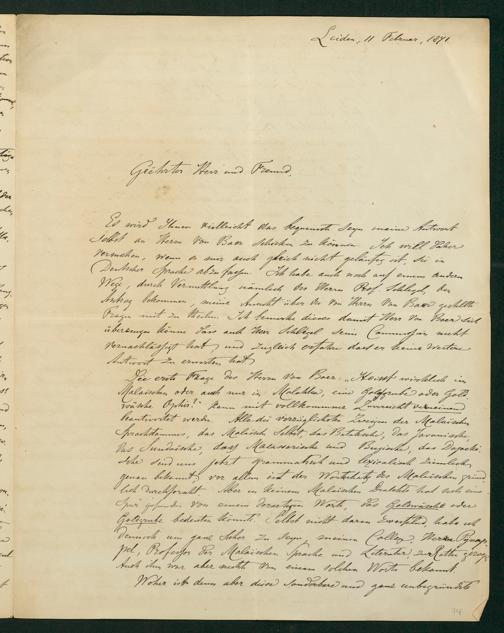 Leiden, 11 Februar, 1871
Geehrter Herr und Freund.
Es wird Ihnen vielleicht das bequemste seyn meine Antwort
selbst an Herrn von Baer schicken zu können. Ich will daher
versuchen, wenn es mir auch gleich nicht geläufig ist, sie in
Deutscher Sprache abzufassen. Ich habe auch noch auf einem andern
Weg, durch Vermittlung nämlich des Herrn Prof Schlegel, den
Antrag bekommen, meine Ansicht über die von Herrn von Baer gestellte
Fragen mit zu theilen. Ich bemerke dieses damit Herr von Baer sich
überzeugen könne dass auch Herr Schlegel seine Commission nicht
vernachlässigt hat und zugleich erfahre dass er keine weitere
Antwort zu erwarten hat.
Die erste Frage des Herrn von Baer: "Heisst wirklich im
Malaischen oder auch nur in Malakka, eine Goldgrube oder Gold
wäsche Ophir?" kann mit vollkommener Zuversicht verneinend
beantwortet werden. Alle die vorzüglichsten Zweigen des Malaischen
Sprachstammes, das Malaisch selbst, das Battakische, das Javanische,
das Sundaische, das Makassarische und Bugische, das Dajaki
sche sind uns jetzt grammatisch und lexicalisch ziemlich
genau bekannt, vor allem ist der Wörterschatz des Malaischen gründ
lich durchforscht. Aber in keinem Malaischen Dialekte hat sich eine
Spur gefunden von einem derartigen Worte, das Goldwäsche oder
Goldgrube bedeuten könnte. Selbst nicht daran zweifelnd, habe ich
dennoch um ganz sicher zu seyn, meinen Colleg, Herrn Pijnap
pel, Professor der Malaischen Sprache und Literatur, zu Rathe gezogen.
Auch ihm war aber nichts von einem solchen Worte bekannt.
Woher ist denn aber diese sonderbare und ganz unbegründete
74